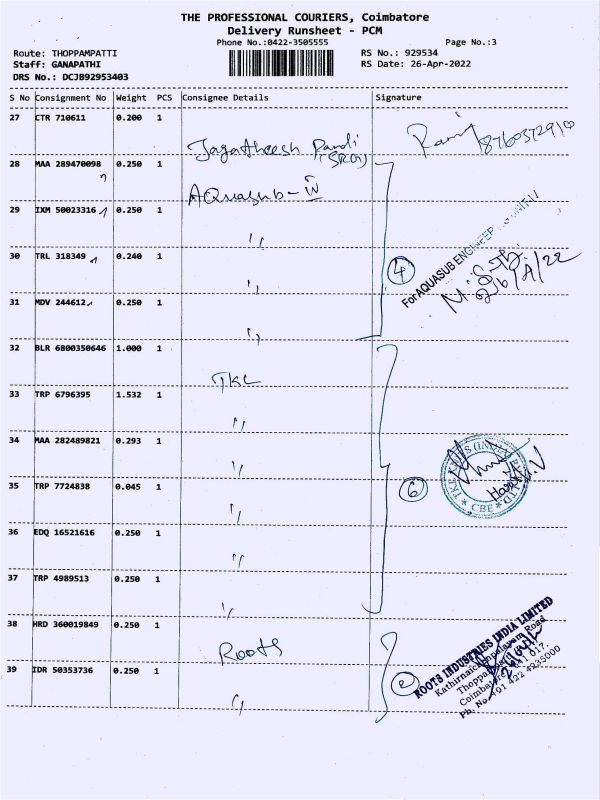 THE PROFESSIONAL COURIERS, Coimbatore
Delivery Runsheet - PCM
Phone No.:0422-3505555
Page No.:3
Route: THOPPAMPATTI
RS No.: 929534
Staff: GANAPATHI
RS Date: 26-Apr-2022
DRS No.: DCJB92953403
S No Consignment No Weight PCS Consignee Details Signature
27 CTR 710611 0.200 1
Jagatheesh Pandi
28 MAA 289470098 0.250 1
AQuasub - IV
29 IXM 50023316 0.250 1
30 TRL 318349 0.240 1
4
For AQUASUB ENGINEER
26/4/22
31 MDV 244612 0.250 1
32 BLR 6800350646 1.000 1
TKL
33 TRP 6796395 1.532 1
34 MAA 282489821 0.293 1
35 TRP 7724838 0.045 1
6
CBE
36 EDQ 16521616 0.250 1
37 TRP 4989513 0.250 1
38 HRD 360019849 0.250 1
Roots
39 IDR 50353736 0.250 1
2
ROOTS INDUSTRIES INDIA LIMITED
Road
Ph. No. +91 422 4235000